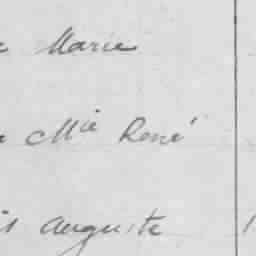 Marie
Mie René
Auguste